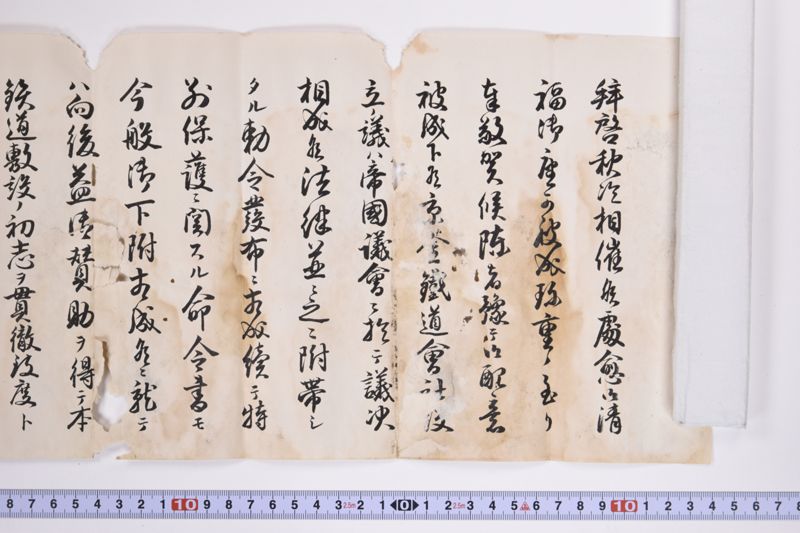 拜啓秋冷相催候處愈御清
福御座可被成珍重ノ至リ
奉敬賀候陳者豫テ御配意
被成下候京釜鐵道會社設
立ノ議ハ帝國議會ニ於テ議决
相成候法律並ニ之ニ附帯シ
タル勅令發布ニ相成續テ特
別保護ニ関スル命令書モ
今般御下附相成候ニ就テ
ハ向後益御賛助ヲ得テ本
鉄道敷設ノ初志ヲ貫徹致度ト
8 7 6 5 4 3 2 1 10 9 8 7 6 5 4 3 2.5m 2 1 0 1 2 2.5m 3 4 5 6 7 8 9 10 1 2 3 4 5 6 7 8